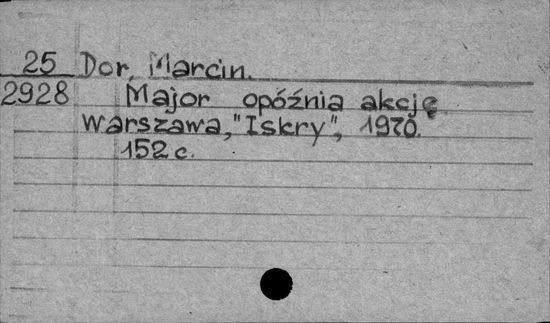 25 Dor, Marcin.
2928 Major opóźnia akcję.
Warszawa, "Iskry", 1970.
152 c.